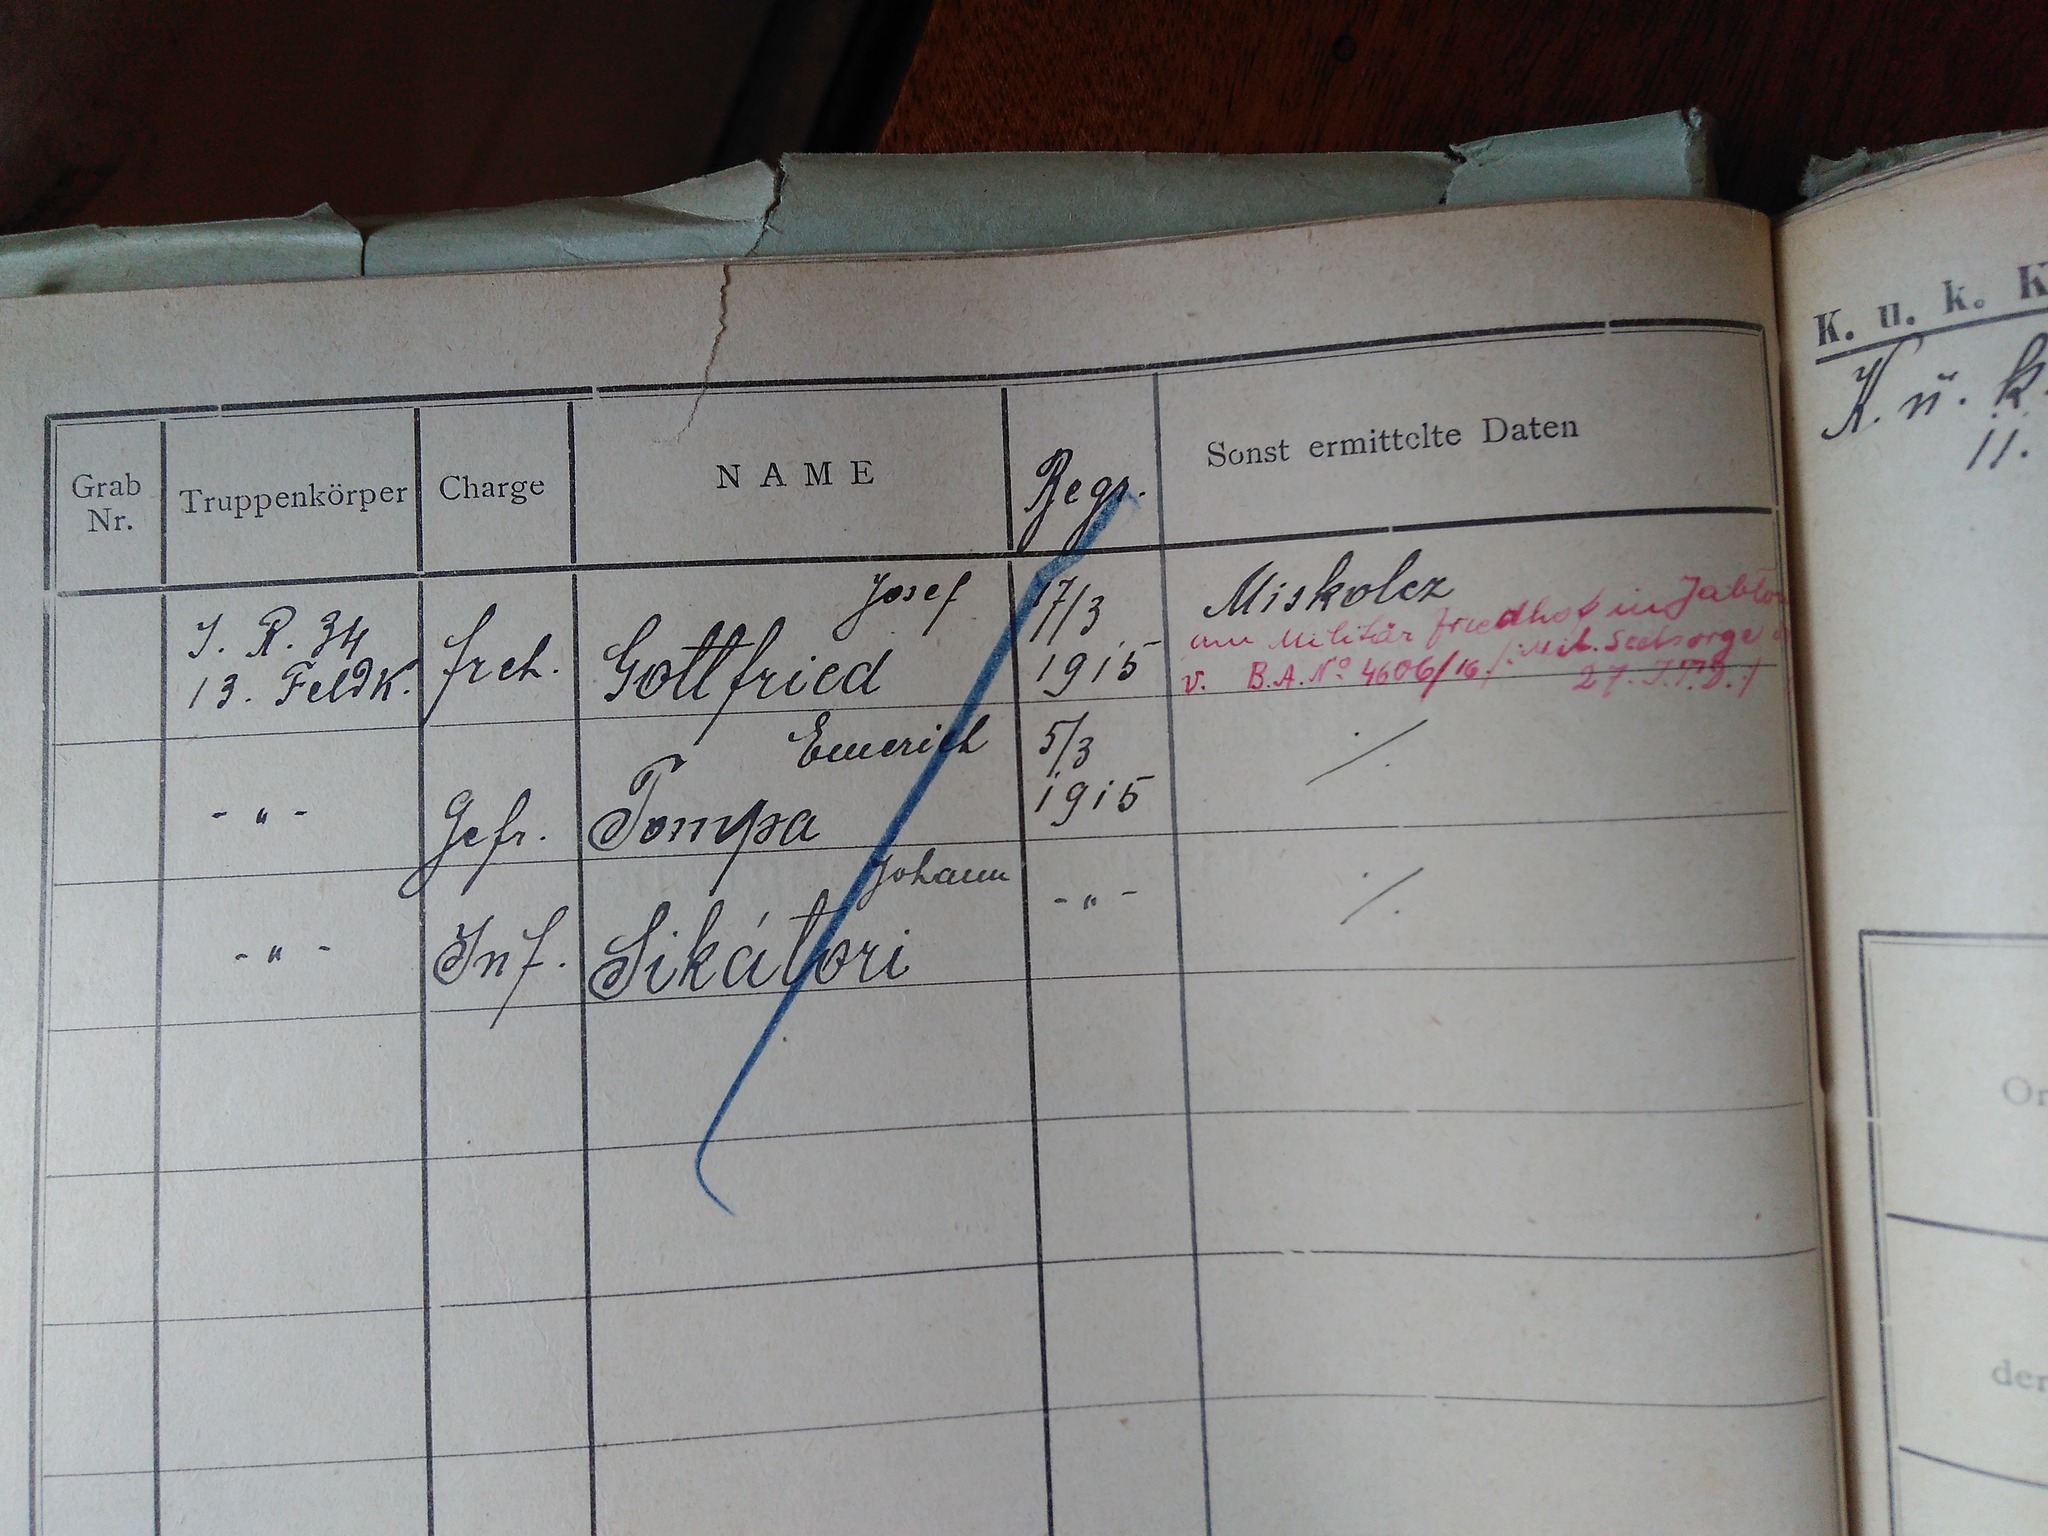 Grab Nr.
Truppenkörper
Charge
NAME
Begr.
Sonst ermittelte Daten
I. R. 34
13. Feldk.
frch.
Josef
Gottfried
17/3
1915
Miskolcz
am Militär friedhof in Jablon
v. B.A. No 4606/16 /: Mil. Seelsorge
27. I.T.D. /
- " -
Gefr.
Emerich
Tompa
5/3
1915
·/.
- " -
Inf.
Johann
Sikátori
- " -
·/.
K. u. k. K
K. u. k.
11.
Or
der